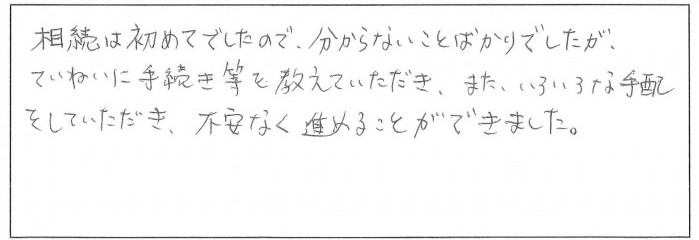 相続は初めてでしたので、分からないことばかりでしたが、
ていねいに手続き等を教えていただき、また、いろいろな手配
をしていただき、不安なく進めることができました。